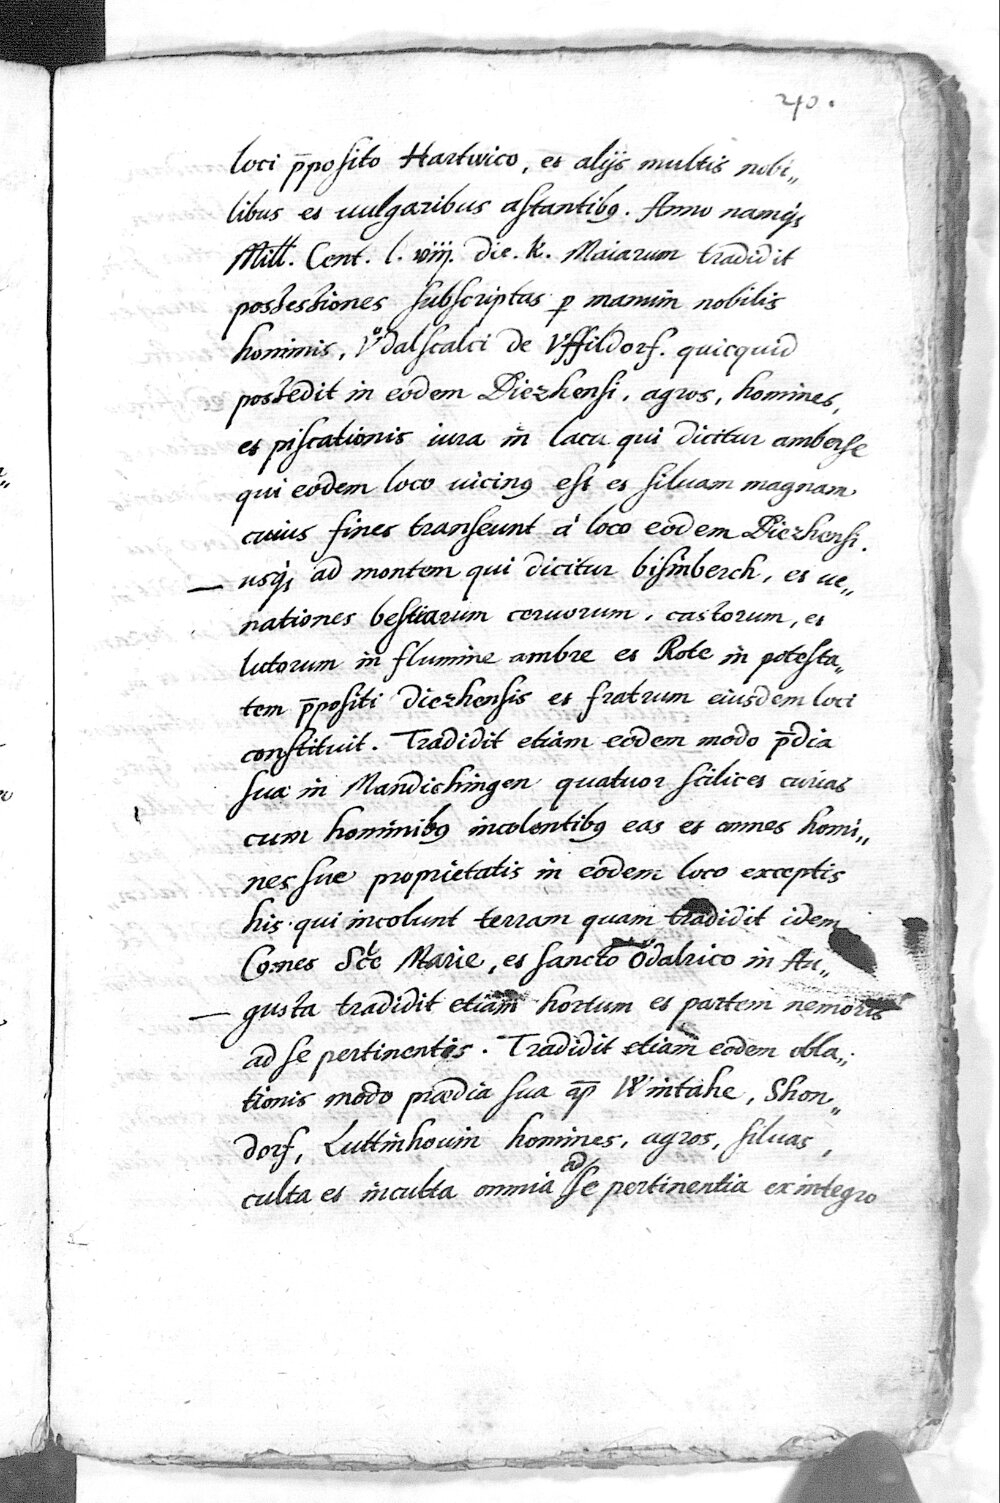 240.
loci p̄posito Hartwico, et alijs multis nobi„
libus et uulgaribus astantibꝰ. Anno namqꝫ
Mill. Cent. l. viij. die. k. Maiarum tradidit
possessiones subscriptas p manum nobilis
hominis, Vͦdalscalci de Vffildorf. quicquid
possedit in eodem Diezhensi, agros, homines,
et piscationis iura in lacu qui dicitur amberse
qui eodem loco uicinꝰ est et siluam magnam
cuius fines transeunt à loco eodem Diezhensi.
usqꝫ ad montem qui dicitur bisinberch, et ue„
nationes bestiarum ceruorum, castorum, et
lutorum in flumine ambre et Rote in potesta„
tem p̄positi diezhensis et fratrum eiusdem loci
constituit. Tradidit etiam eodem modo p̄dia
sua in Mandichingen quatuor scilicet curias
cum hominibꝰ incolentibꝰ eas et omnes homi„
nes sue proprietatis in eodem loco exceptis
his qui incolunt terram quam tradidit idem
Comes Scē Marie, et sancto Ödalrico in Au„
gusta tradidit etiam hortum et partem nemoris
ad se pertinentis. Tradidit etiam eodem obla„
tionis modo prædia sua ap̄ Wintahe, Shon„
dorf, Luttinhouin homines, agros, siluas,
culta et inculta omnia ad se pertinentia ex integro